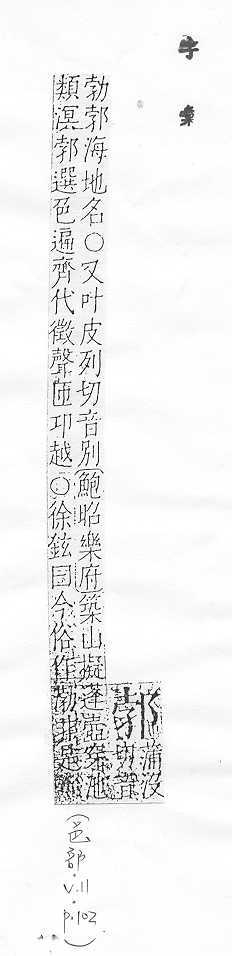 字彙
郣
蒲沒
切音
勃郣海地名○又叶皮列切音別鮑昭樂府築山擬蓬壺穿池
類溟郣選色遍齊代徵聲匝卭越○徐鉉曰今俗作勃非是
(邑部·v.11·p.102)